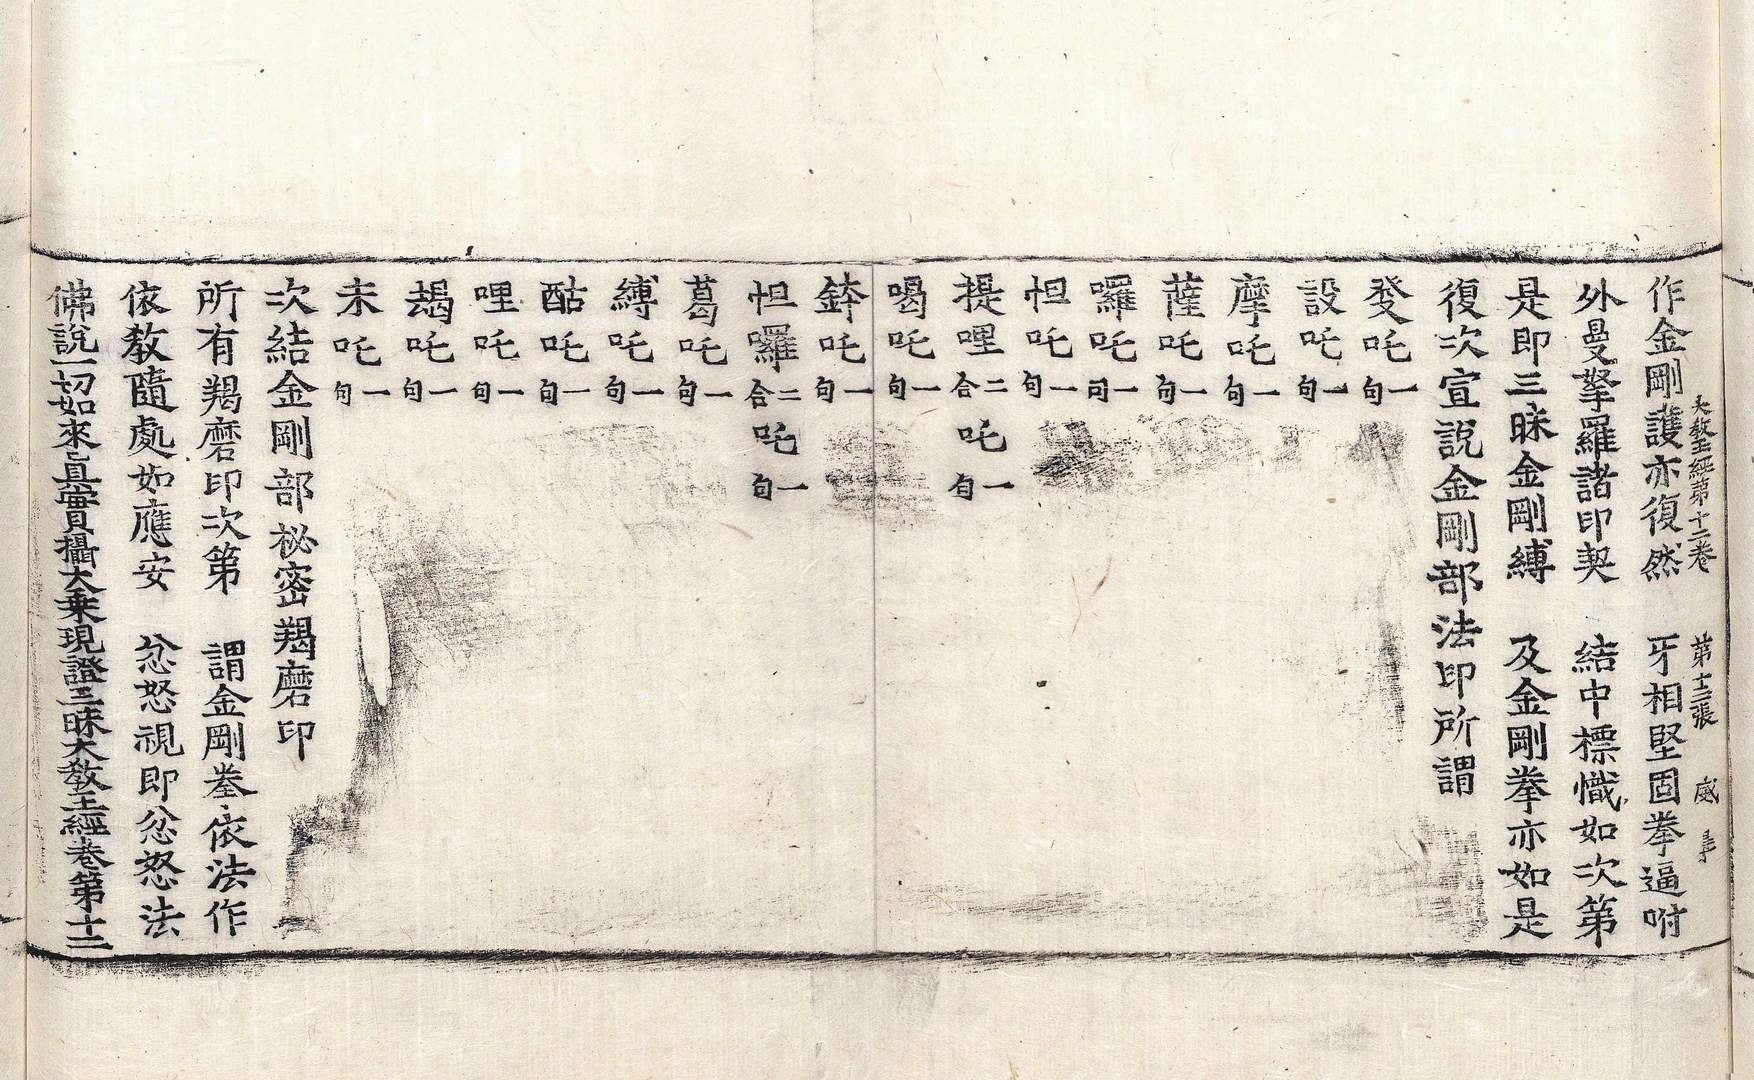 大教王經第十二卷　第十三張　盛
作金剛護亦復然　牙相堅固拳逼咐
外曼拏羅諸印契　結中標幟如次第
是即三昧金剛縛　及金剛拳亦如是
復次宣說金剛部法印所謂
發吒一句
設吒一句
摩吒一句
薩吒一句
囉吒一句
怛吒一句
提哩二合吒一句
喝吒一句
鉢吒一句
怛囉二合吒一句
葛吒一句
縛吒一句
酤吒一句
哩吒一句
朅吒一句
未吒一句
次結金剛部祕密羯磨印
所有羯磨印次第　謂金剛拳依法作
依教隨處如應安　忿怒視即忿怒法
佛說一切如來眞實攝大乗現證三昧大教王經卷第十二